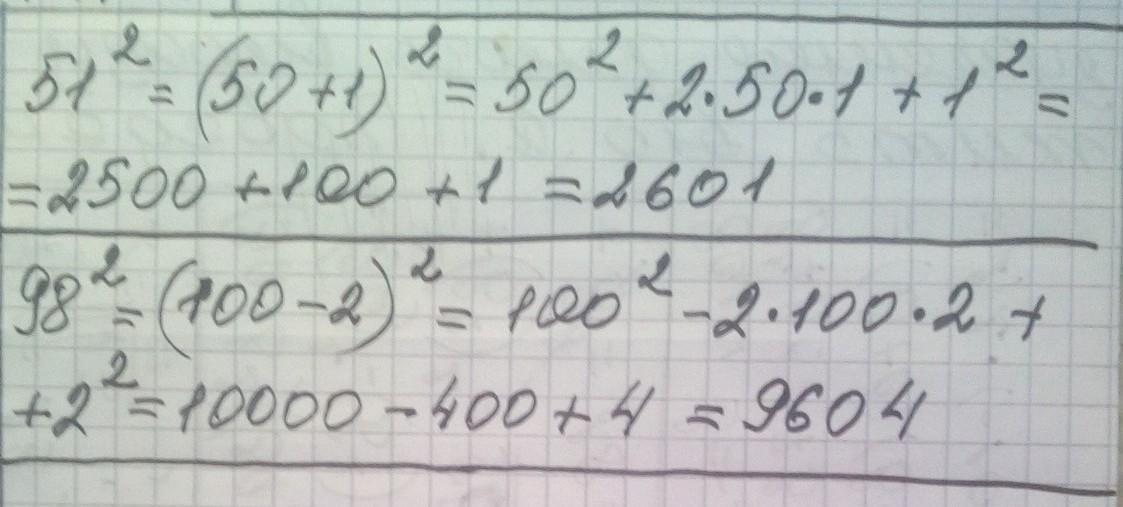 51² = (50+1)² = 50² + 2·50·1 + 1² =
= 2500 + 100 + 1 = 2601
98² = (100-2)² = 100² - 2·100·2 +
+ 2² = 10000 - 400 + 4 = 9604